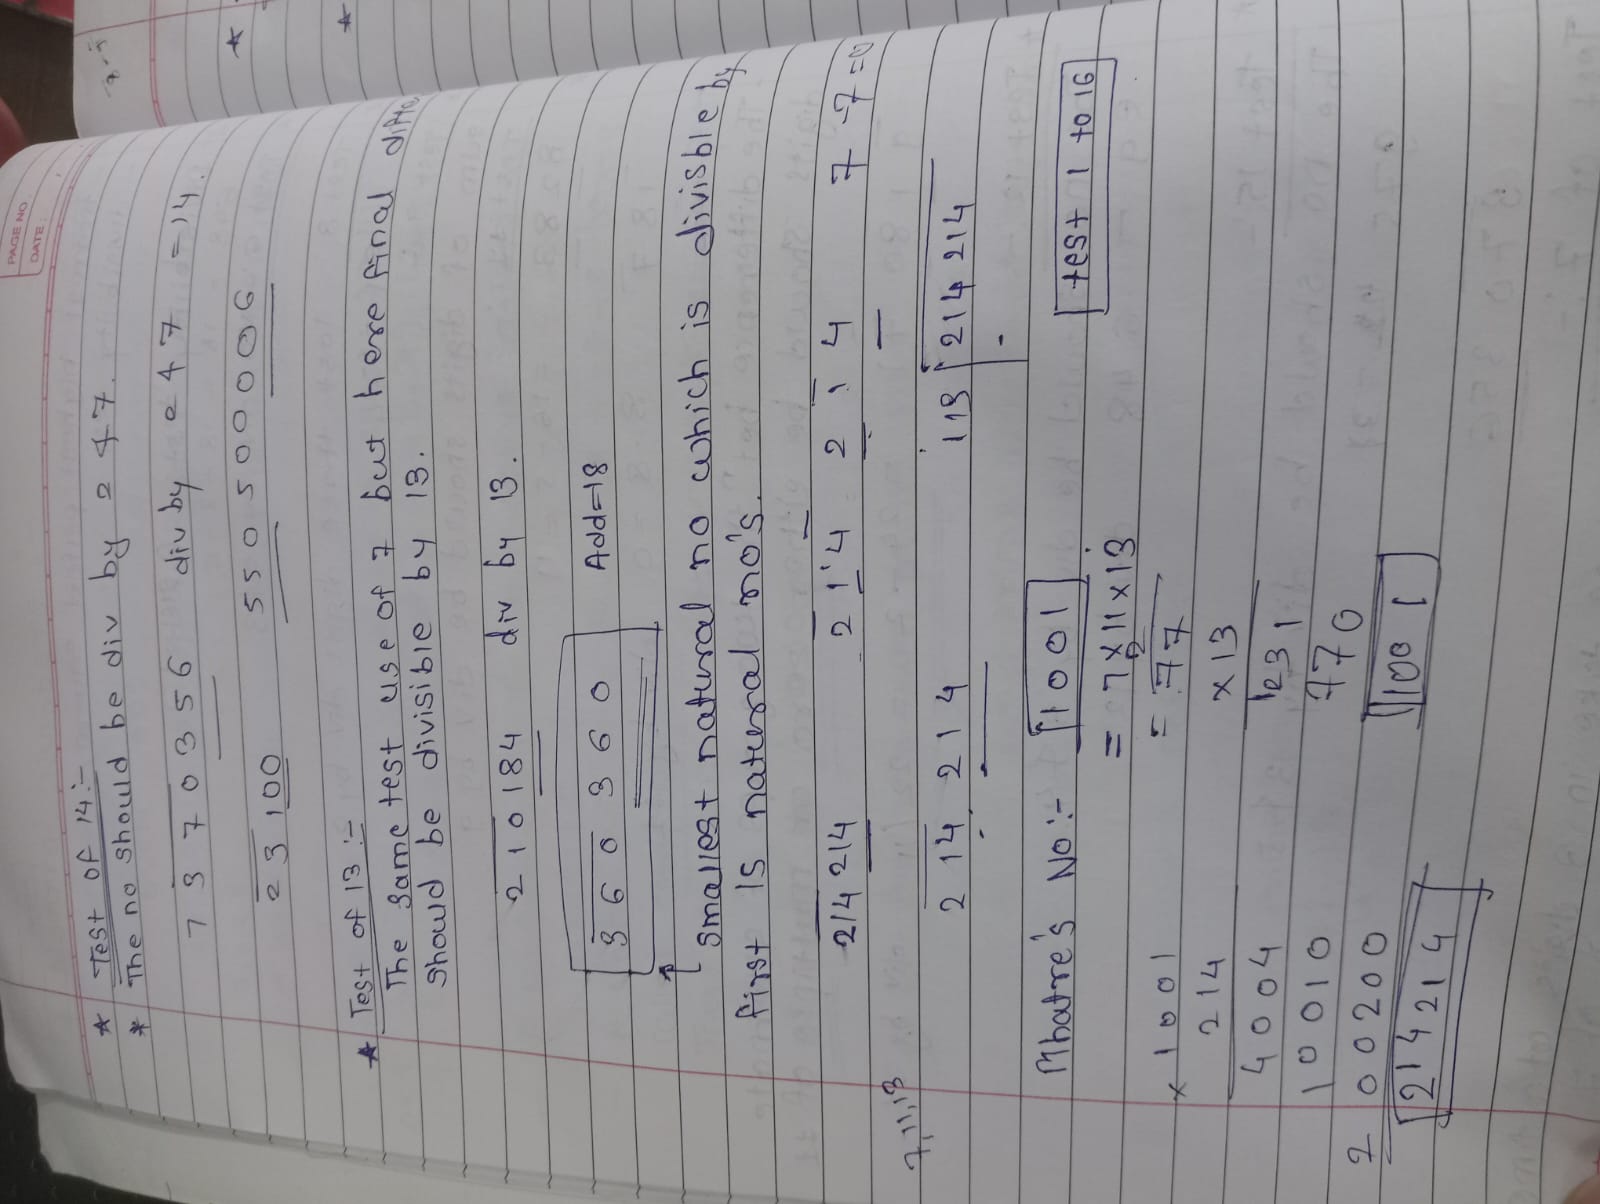 PAGE NO.
DATE:
* Test of 14:-
* The no should be div by 2 & 7.
7 3 7 0 3 5 6 div by 2 & 7 = 14.
2 3 100 550500006
* Test of 13:-
The same test use of 7 but here final
should be divisible by 13.
2 1 0 184 div by 13.
3 6 0 3 6 0 Add=18
Smallest natural no which is divisble by
first is natural no's.
214 214 2 1 4 2 1 4 7-7=0
7,11,13
2 14 214 113 214 214
Mhatre's No:- 1001 test 1 to 16
= 7 x 11 x 13
x 1001 = 77
214 x 13
4004 231
10010 770
200200 1001
214214